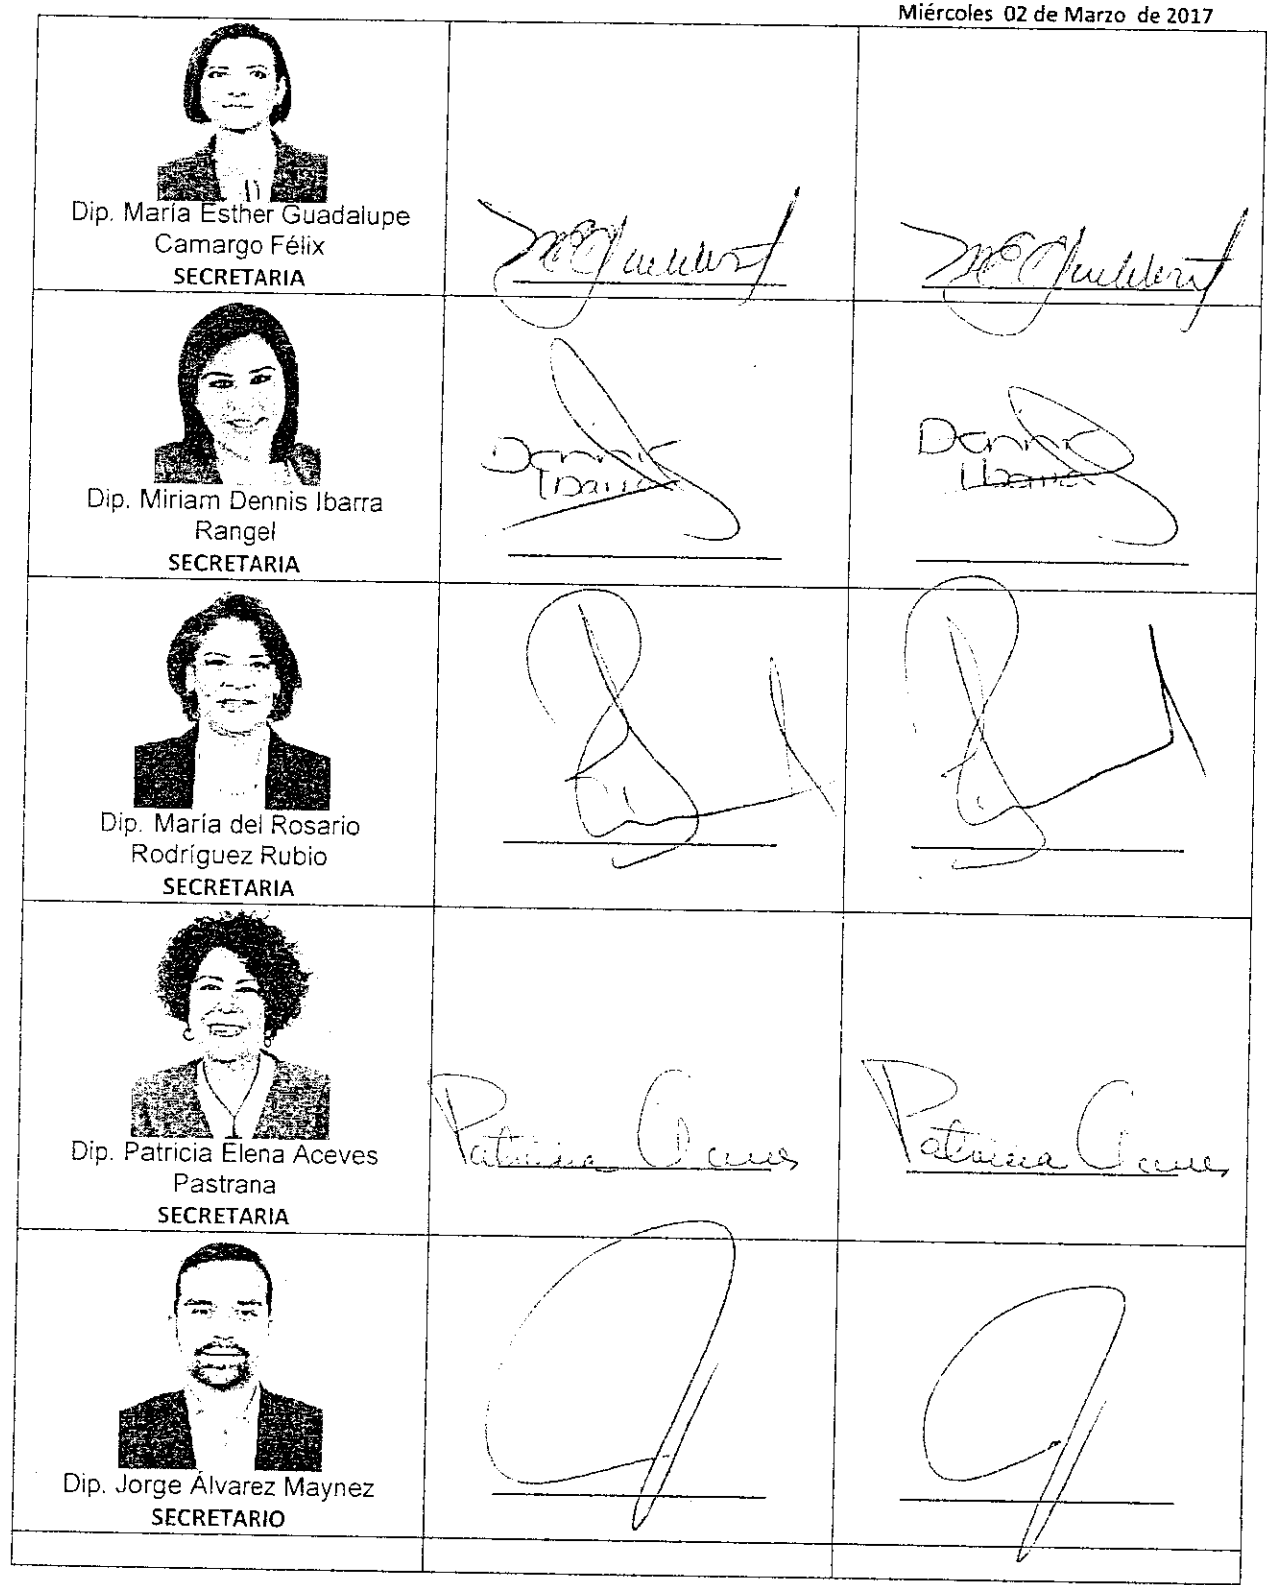 Miércoles 02 de Marzo de 2017
Dip. María Esther Guadalupe
Camargo Félix
SECRETARIA
Dip. Miriam Dennis Ibarra
Rangel
SECRETARIA
Dennis
Ibarra
Dennis
Ibarra
Dip. María del Rosario
Rodríguez Rubio
SECRETARIA
Dip. Patricia Elena Aceves
Pastrana
SECRETARIA
Patricia Aceves
Patricia Aceves
Dip. Jorge Álvarez Maynez
SECRETARIO